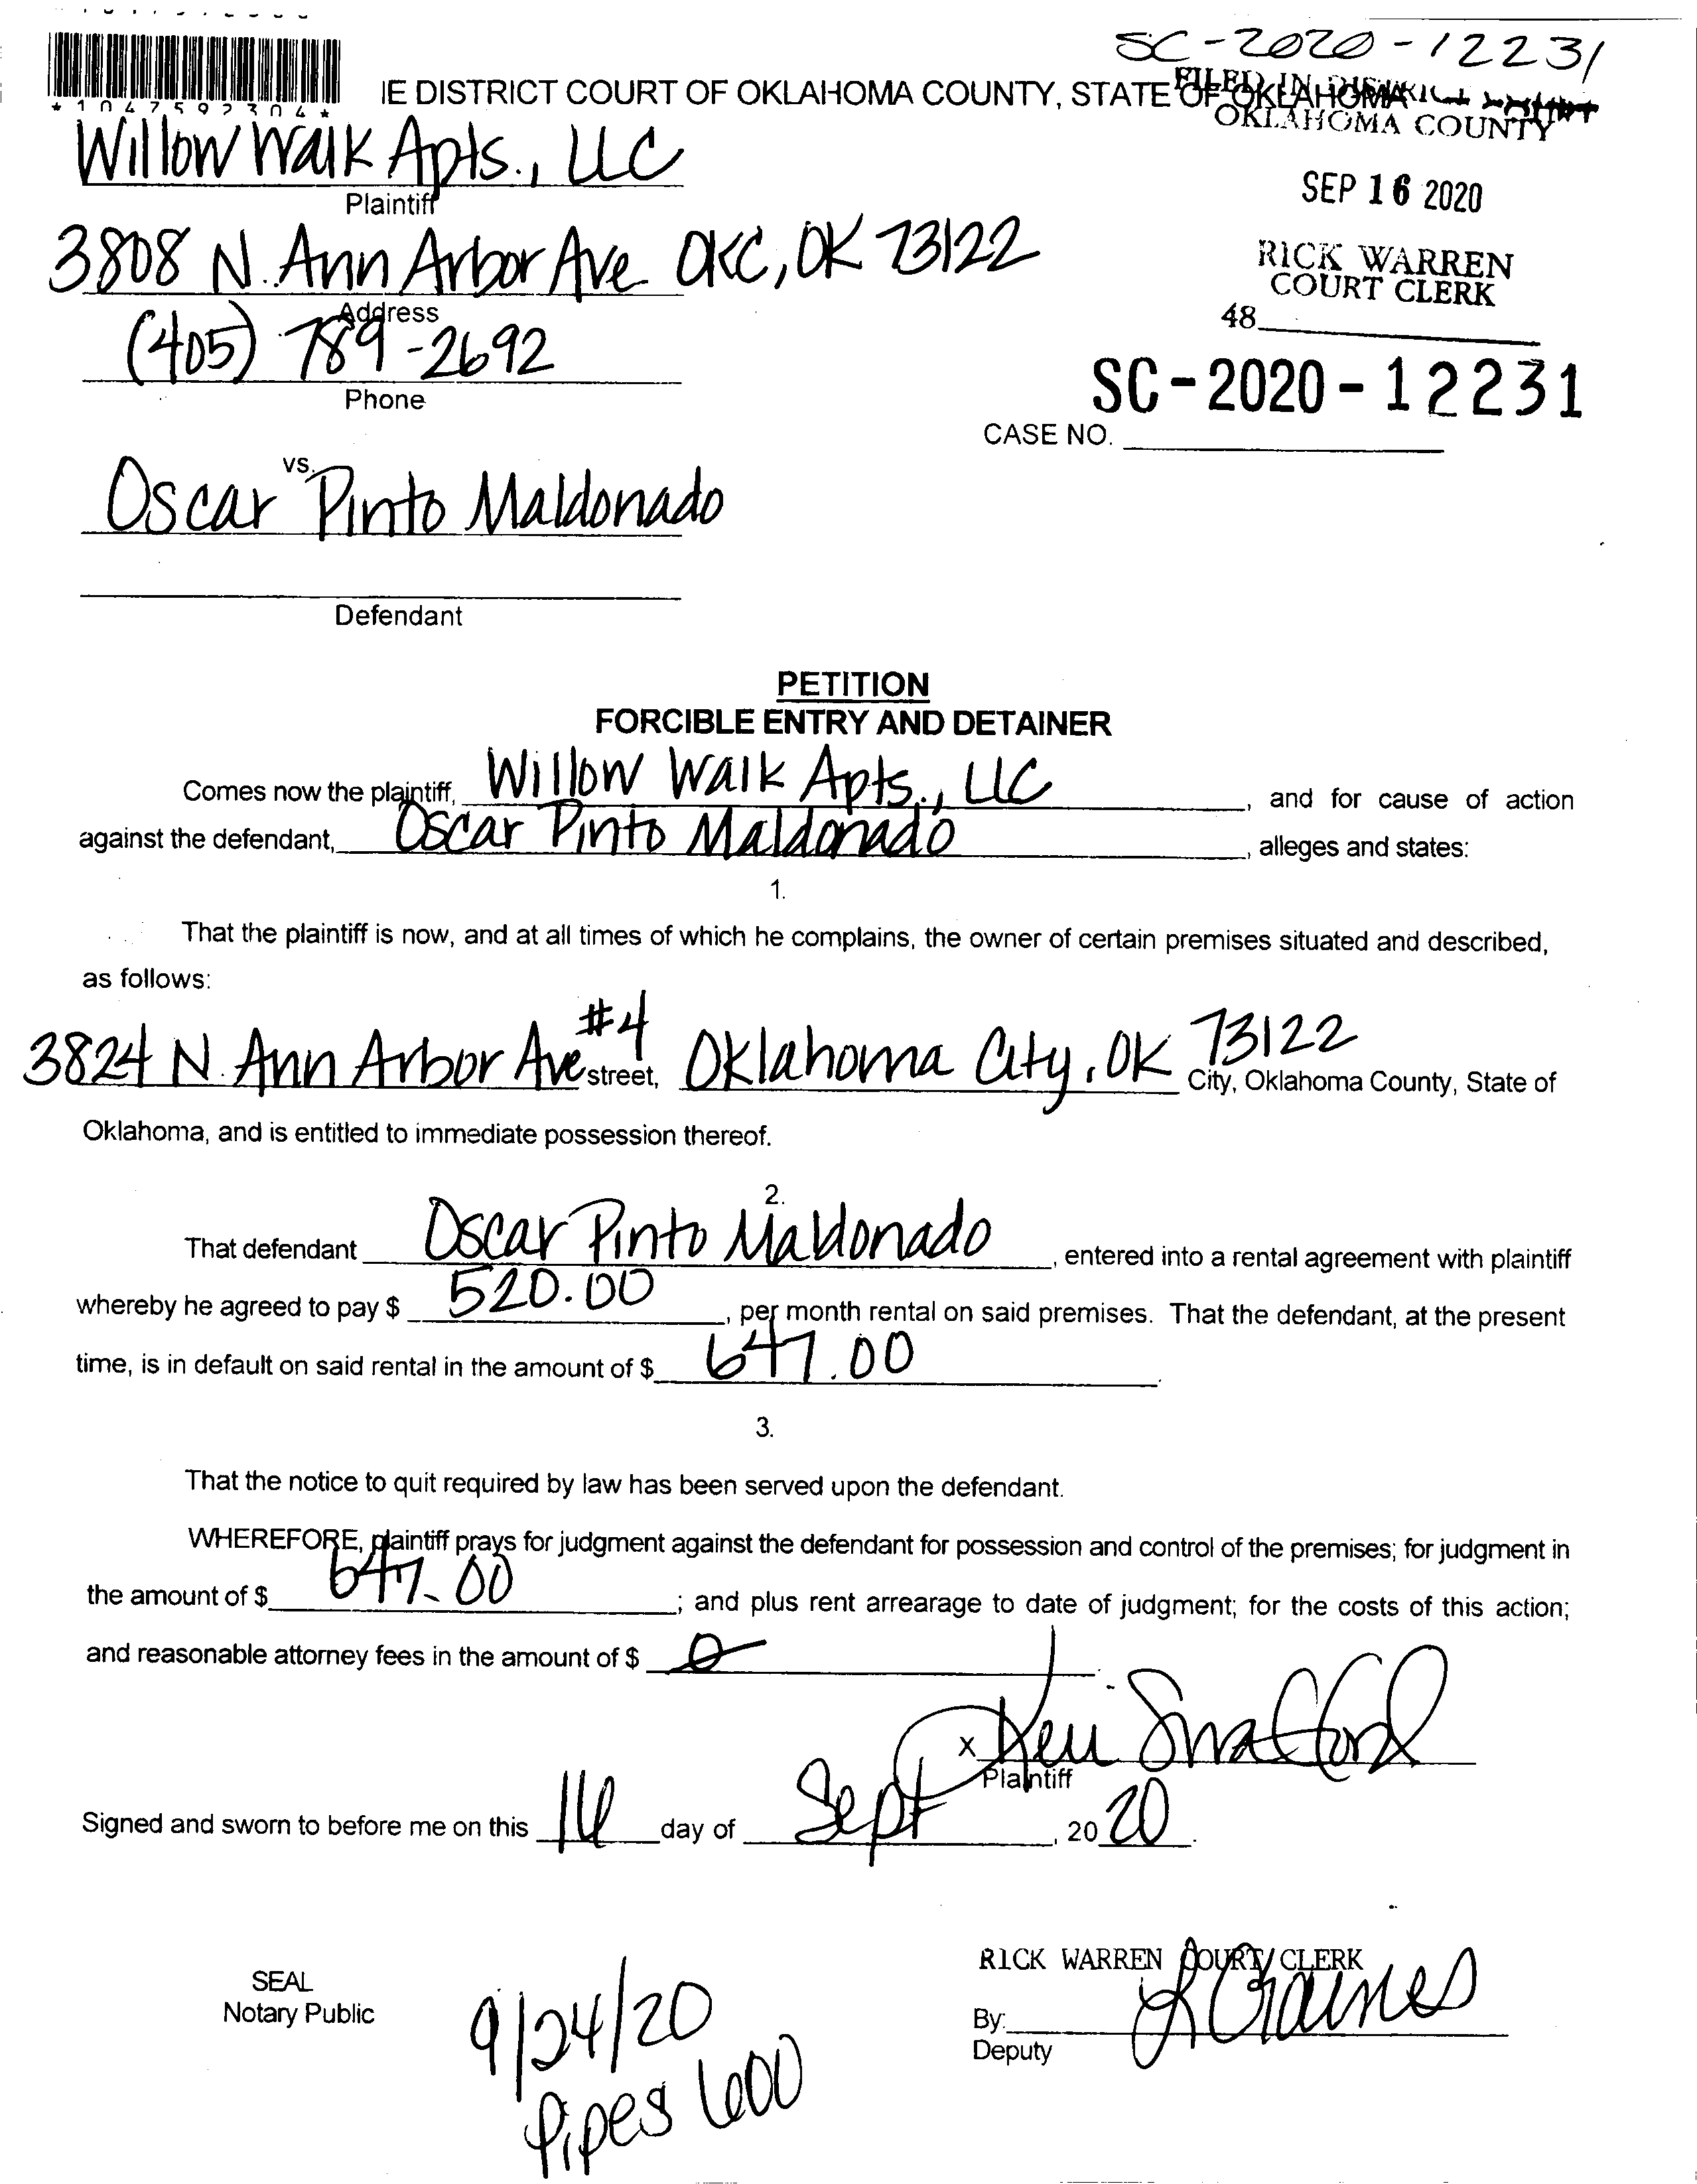 SC-2020-12231
*1047592304*
IE DISTRICT COURT OF OKLAHOMA COUNTY, STATE OF OKLAHOMA
FILED IN DISTRICT COURT
OKLAHOMA COUNTY
Willow Walk Apts., LLC
Plaintiff
SEP 16 2020
3808 N. Ann Arbor Ave OKC, OK 73122
Address
RICK WARREN
COURT CLERK
48
(405) 789-2692
Phone
SC-2020-12231
CASE NO.
vs.
Oscar Pinto Maldonado
Defendant
PETITION
FORCIBLE ENTRY AND DETAINER
Comes now the plaintiff, Willow Walk Apts., LLC, and for cause of action
against the defendant, Oscar Pinto Maldonado, alleges and states:
1.
That the plaintiff is now, and at all times of which he complains, the owner of certain premises situated and described,
as follows:
3824 N. Ann Arbor Ave #4 street, Oklahoma City, OK 73122 City, Oklahoma County, State of
Oklahoma, and is entitled to immediate possession thereof.
2.
That defendant Oscar Pinto Maldonado, entered into a rental agreement with plaintiff
whereby he agreed to pay $ 520.00, per month rental on said premises. That the defendant, at the present
time, is in default on said rental in the amount of $ 647.00.
3.
That the notice to quit required by law has been served upon the defendant.
WHEREFORE, plaintiff prays for judgment against the defendant for possession and control of the premises; for judgment in
the amount of $ 647.00; and plus rent arrearage to date of judgment; for the costs of this action;
and reasonable attorney fees in the amount of $ 0.
x
Plaintiff
Signed and sworn to before me on this 16 day of Sept, 2020.
RICK WARREN COURT CLERK
SEAL
Notary Public
By:
Deputy
9/24/20
Pipes 600